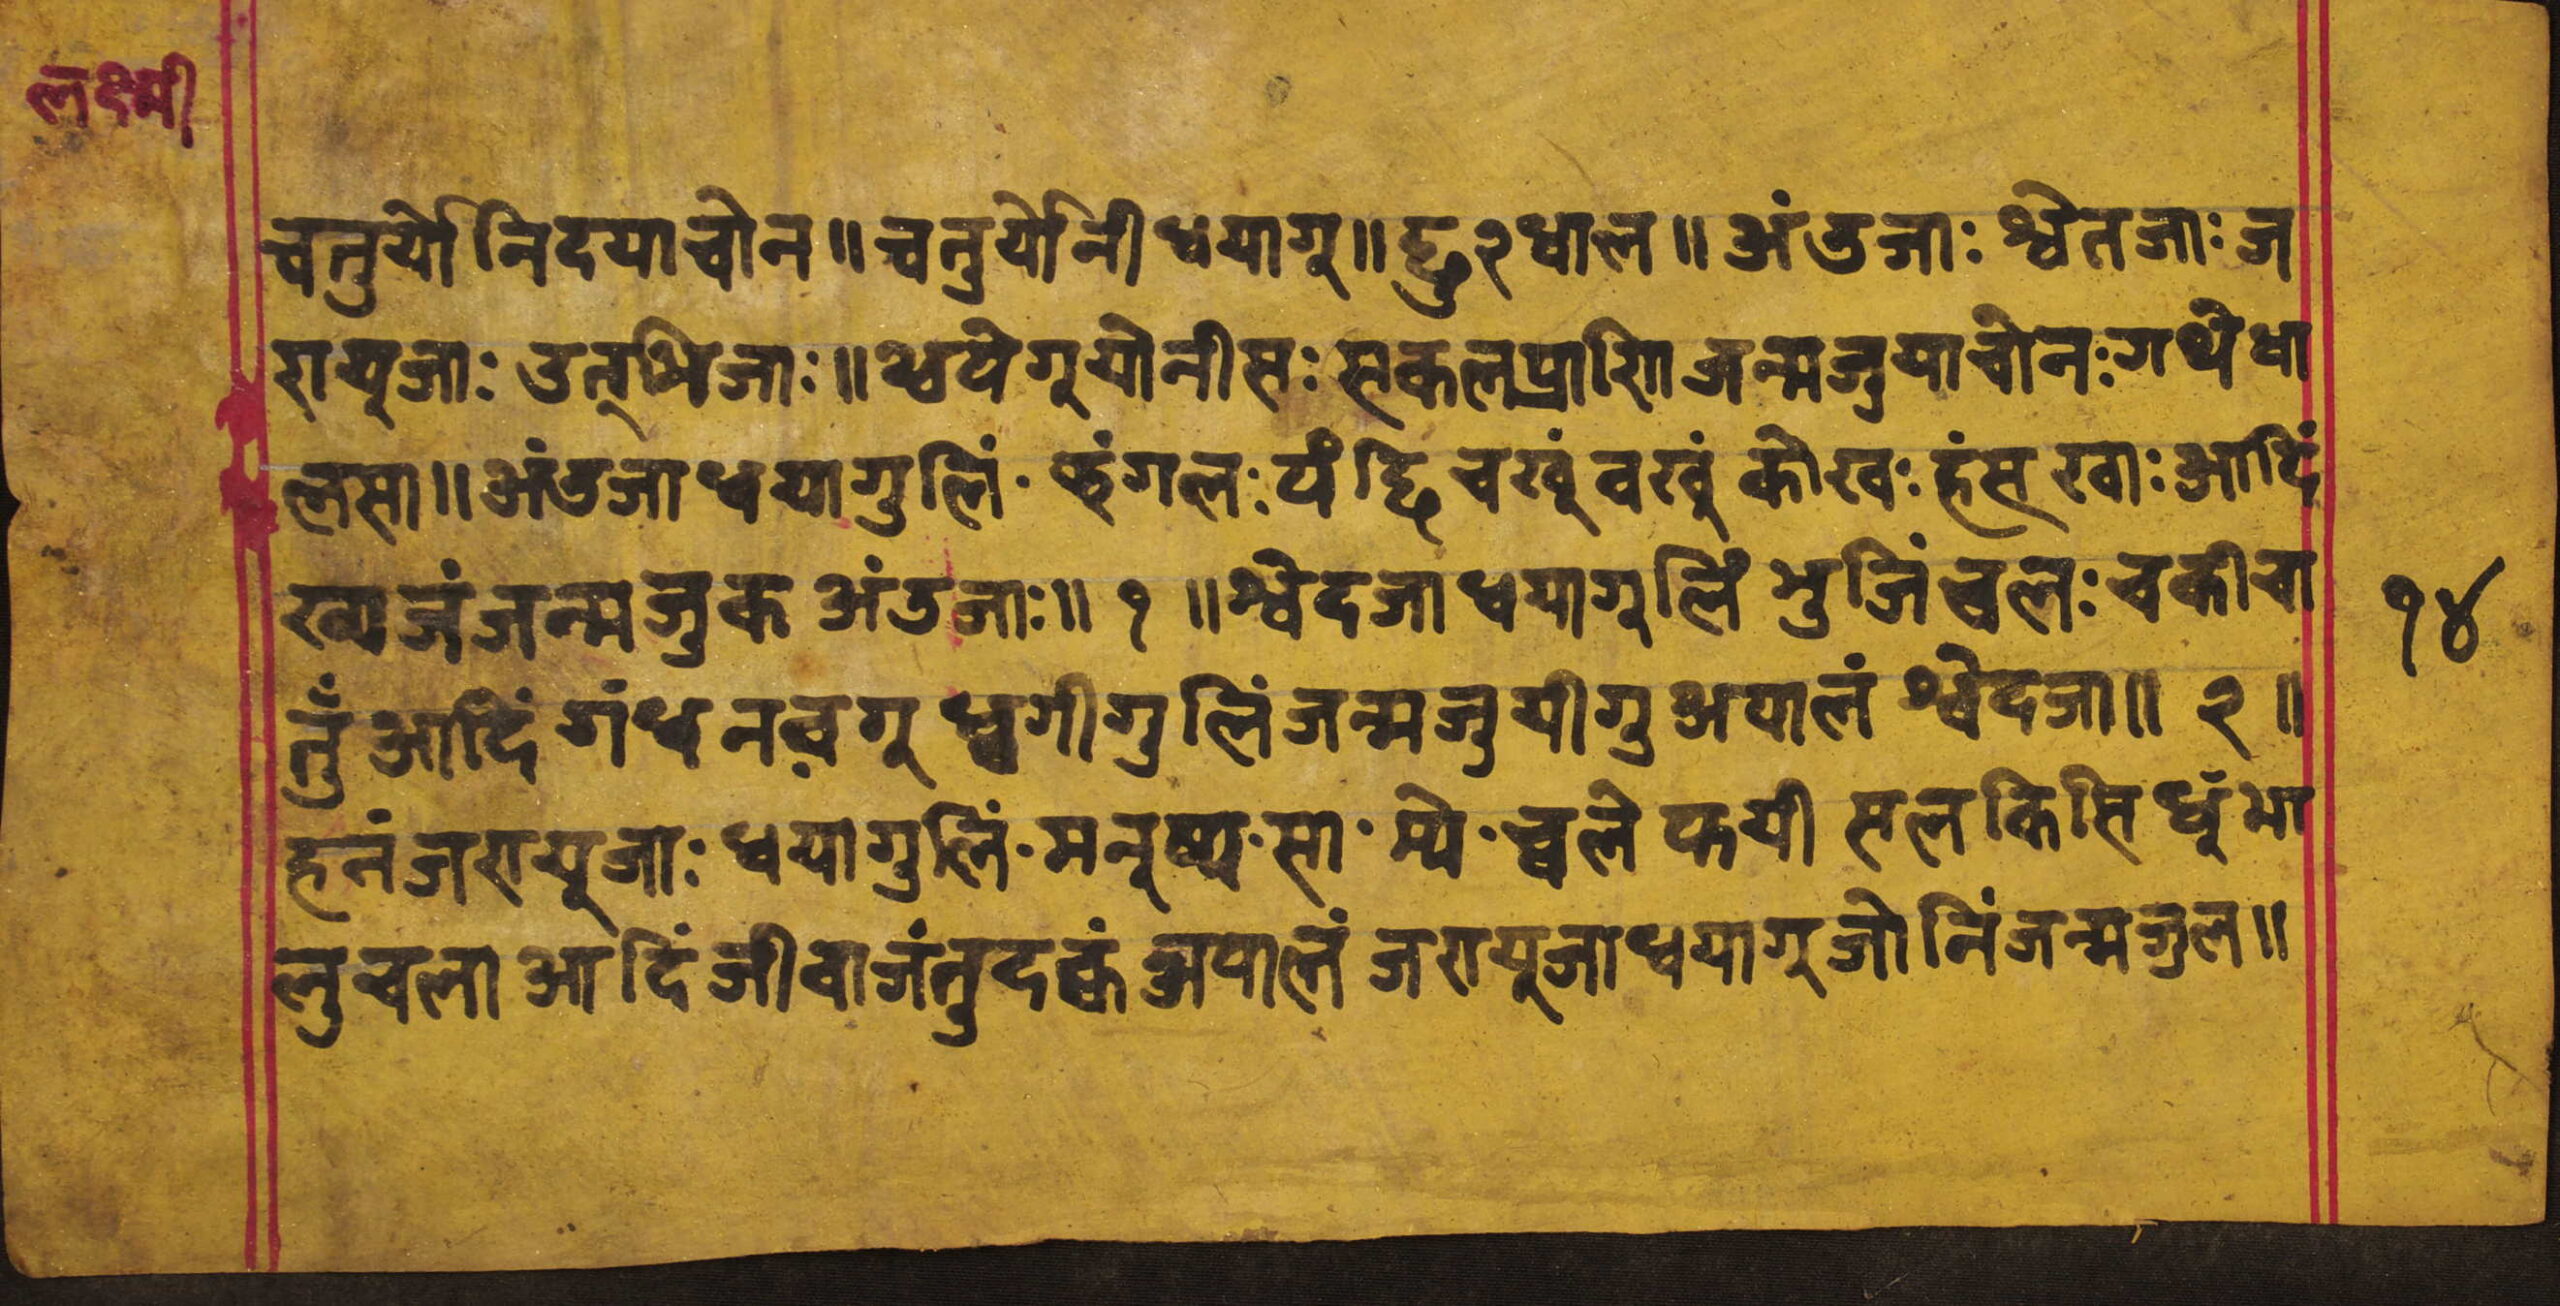 लक्ष्मी
चतुर्योनिदयाचोन॥ चतुर्योनी धयागू॥ छु२धाल॥ अंडजाः श्वेतजाः ज
रायूजाः उत्भिजाः॥ थ्वपेगूयोनीसः सकलप्राणि जन्मजुयाचोनः गथेधा
लसा॥ अंडजा धयागुलिं · झंगलः पंछि चखुं वखुं कोखः हंस खाः आदिं
ख्यजं जन्मजुक अंडजाः॥ १ ॥ श्वेदजा धयागूलिं भुजिं चलः चकीचा
तुँ आदिं गंध नवगू ध्वगीगुलिं जन्मजुयीगु अपालं श्वेदजा॥ २ ॥
हनं जरायूजाः धयागुलिं · मनूष्य · सा · म्ये · च्वले फयी सल किसि धूँ भा
लुचला आदिं जीवाजंतुदक्वं अपालं जरायूजाधयागू जोनिं जन्मजुल॥
१४